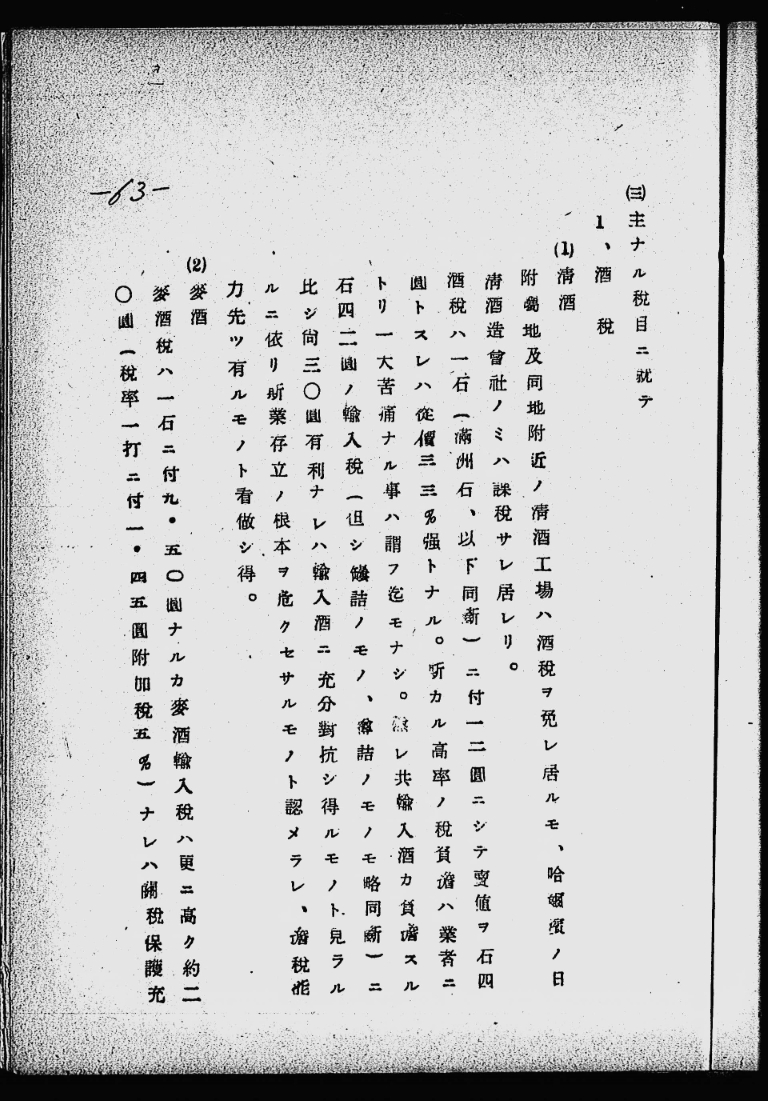 ㈢主ナル税目ニ就テ
1、酒税
(1)清酒
附屬地及同地附近ノ清酒工場ハ酒税ヲ免レ居ルモ、哈爾濱ノ日
清酒造會社ノミハ課税サレ居レリ。
酒税ハ一石(滿洲石、以下同斷)ニ付一二圓ニシテ賣値ヲ石四
圓トスレハ從價三三%强トナル。斯カル高率ノ税負擔ハ業者ニ
トリ一大苦痛ナル事ハ謂フ迄モナシ。然レ共輸入酒カ負擔スル
石四二圓ノ輸入税(但シ罎詰ノモノ、樽詰ノモノモ略同斷)ニ
比シ尚三〇圓有利ナレハ輸入酒ニ充分對抗シ得ルモノト見ラル
ルニ依リ斯業存立ノ根本ヲ危クセサルモノト認メラレ、擔税能
力先ツ有ルモノト看做シ得。
(2)麥酒
麥酒税ハ一石ニ付九・五〇圓ナルカ麥酒輸入税ハ更ニ高ク約二
〇圓(税率一打ニ付一・四五圓附加税五%)ナレハ關税保護充
—63—